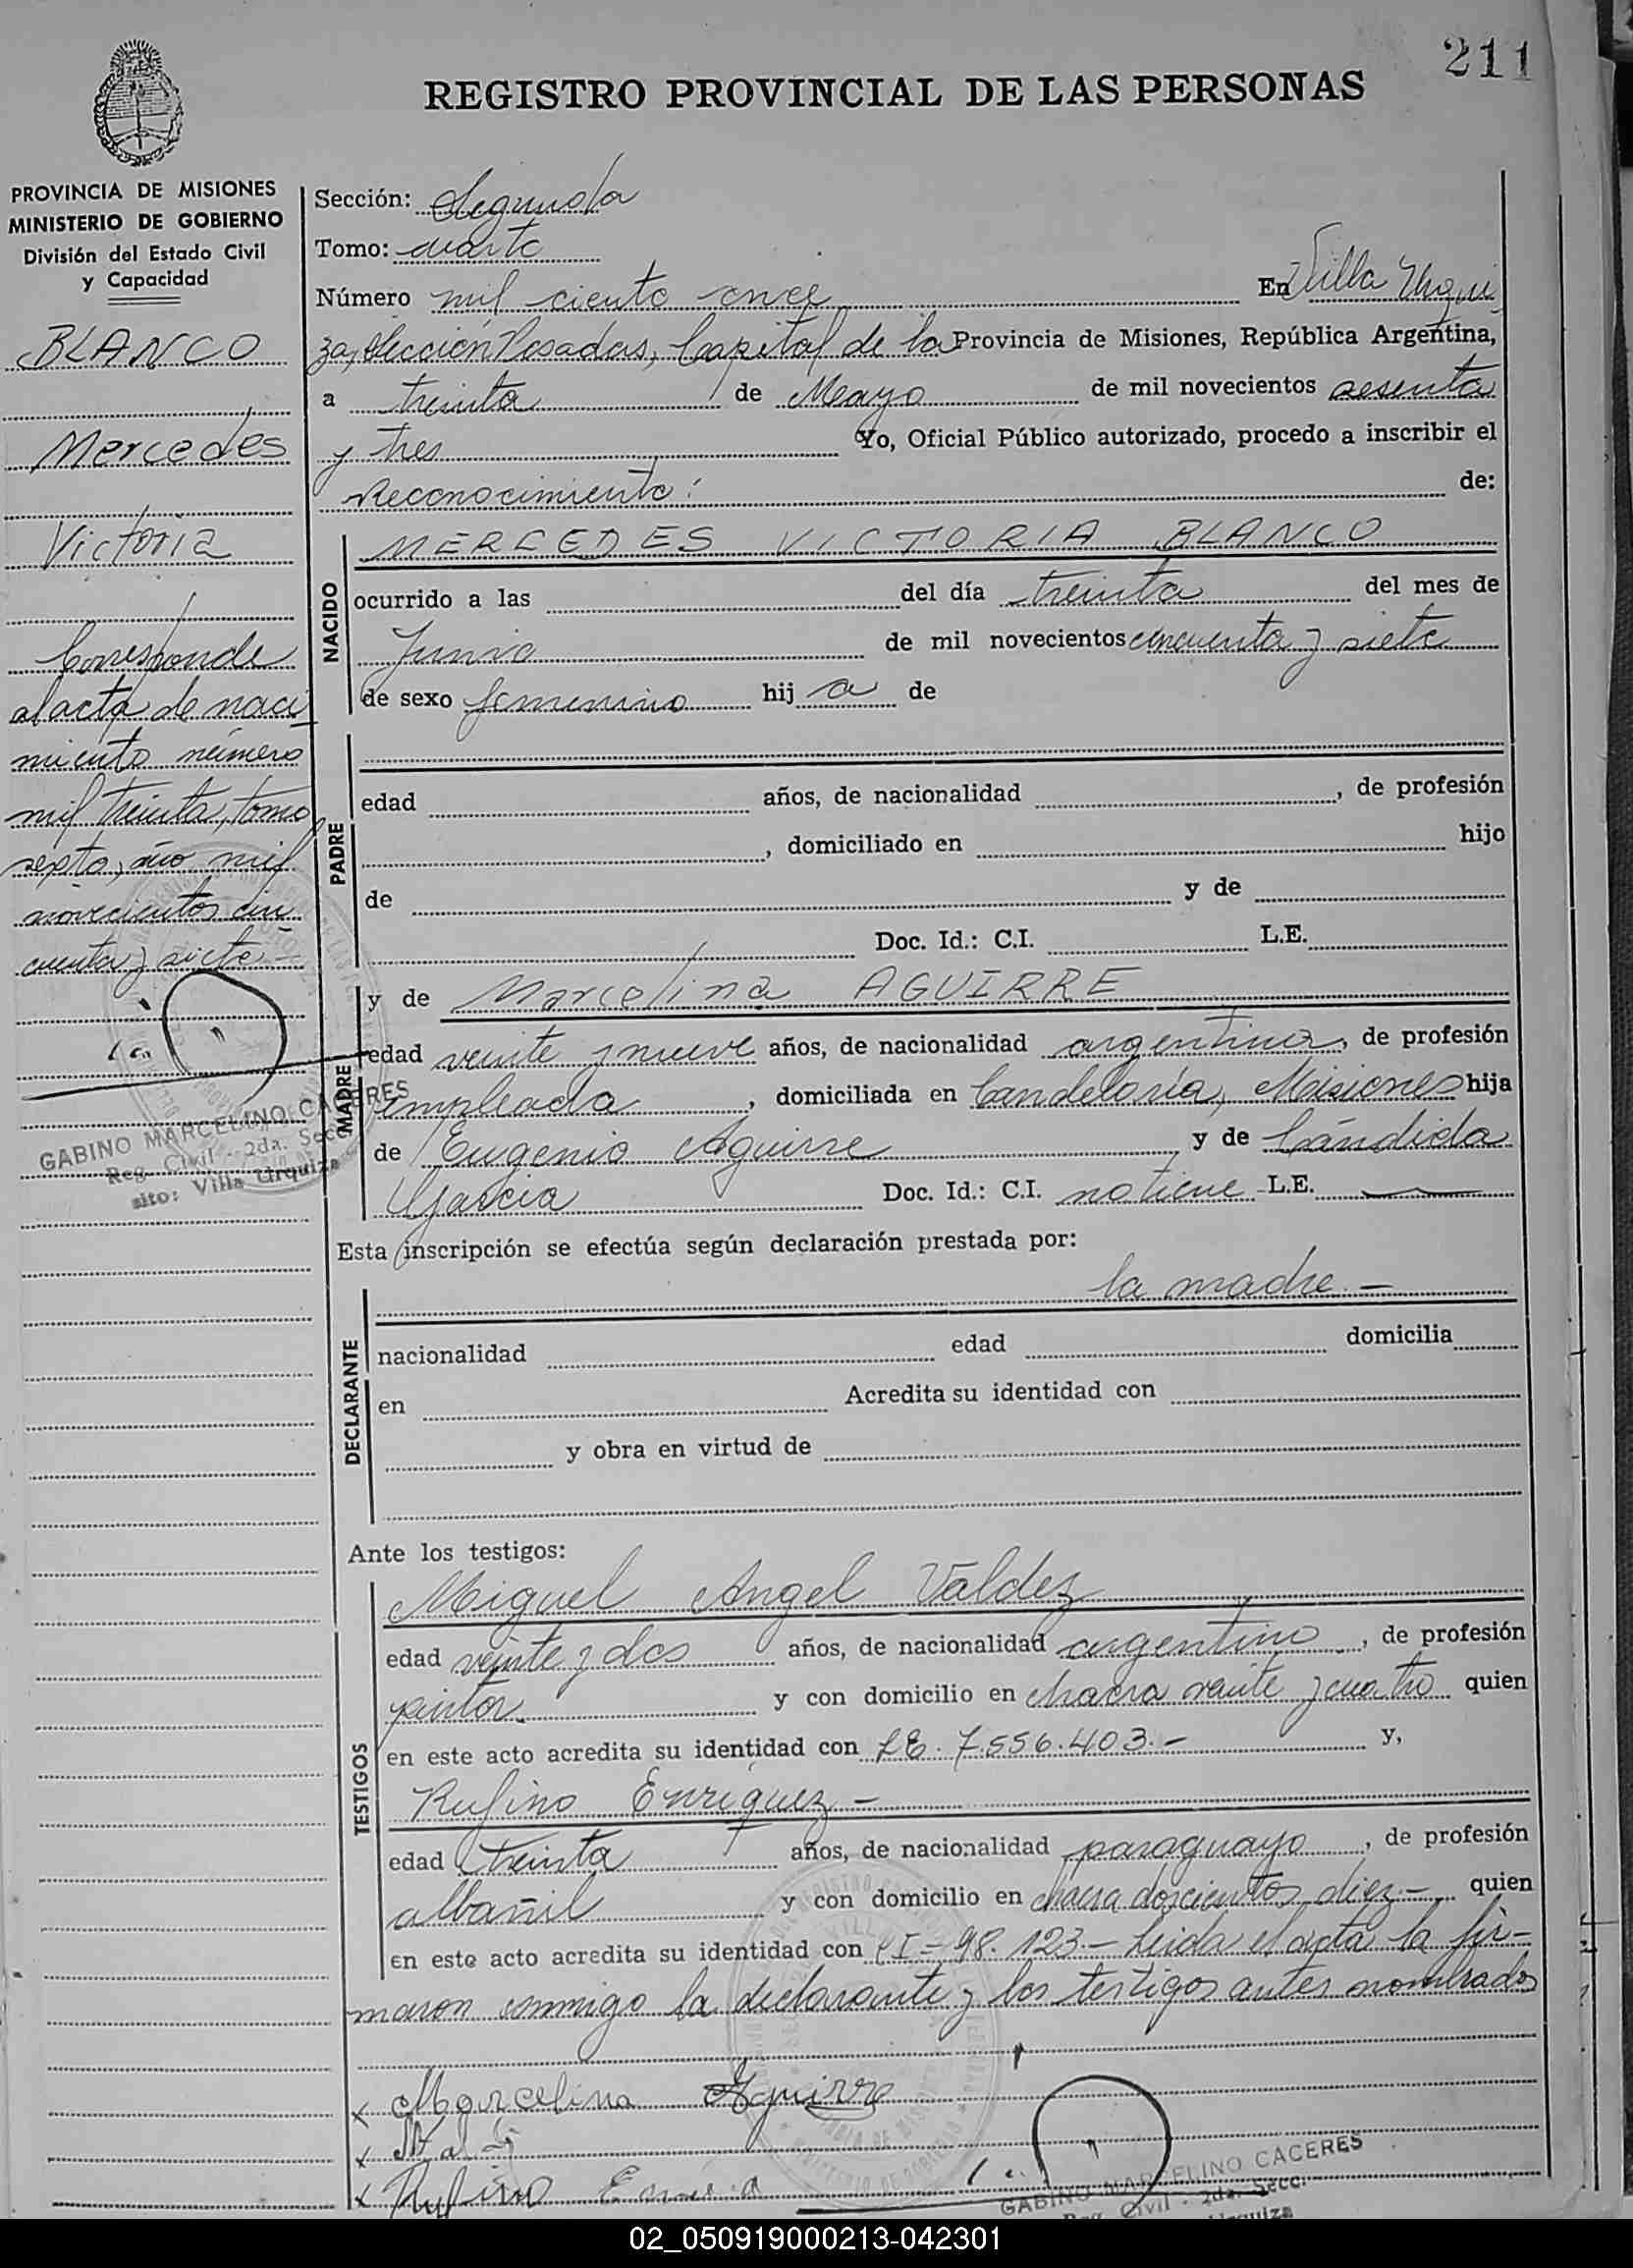 211
REGISTRO PROVINCIAL DE LAS PERSONAS
PROVINCIA DE MISIONES
MINISTERIO DE GOBIERNO
División del Estado Civil
y Capacidad
BLANCO
Mercedes
Victoria
Corresponde
al acta de naci
miento número
mil treinta, tomo
sexto, año mil
novecientos cin
cuenta y siete -
GABINO MARCELINO CACERES
Reg. Civil - 2da. Secc.
sito: Villa Urquiza
Sección: Segunda
Tomo: cuarto
Número mil ciento once En Villa Urqui
za, Sección Posadas, Capital de la Provincia de Misiones, República Argentina,
a treinta de Mayo de mil novecientos sesenta
y tres Yo, Oficial Público autorizado, procedo a inscribir el
Reconocimiento: de:
NACIDO
MERCEDES VICTORIA BLANCO
ocurrido a las del día treinta del mes de
Junio de mil novecientos cincuenta y siete
de sexo femenino hij a de
PADRE
edad años, de nacionalidad , de profesión
, domiciliado en hijo
de y de
Doc. Id.: C.I. L.E.
MADRE
y de Marcelina AGUIRRE
edad veinte y nueve años, de nacionalidad argentina, de profesión
empleada , domiciliada en Candelaria, Misiones hija
de Eugenio Aguirre y de Cándida
Garcia Doc. Id.: C.I. no tiene L.E. —
Esta inscripción se efectúa según declaración prestada por:
la madre. —
DECLARANTE
nacionalidad edad domicilia
en Acredita su identidad con
y obra en virtud de
Ante los testigos:
TESTIGOS
Miguel Angel Valdez
edad veinte y dos años, de nacionalidad argentino , de profesión
pintor. y con domicilio en chacra veinte y cuatro quien
en este acto acredita su identidad con LE. 7.556.403.- y,
Rufino Enriquez -
edad treinta años, de nacionalidad paraguayo , de profesión
albañil y con domicilio en chacra doscientos diez.- quien
en este acto acredita su identidad con CI - 98.123.- Leida el acta la fir-
maron conmigo la declarante y los testigos antes nombrados
x Marcelina Aguirre
x
x Rufino
GABINO MARCELINO CACERES
Reg. Civil - 2da. Secc.
02_050919000213-042301